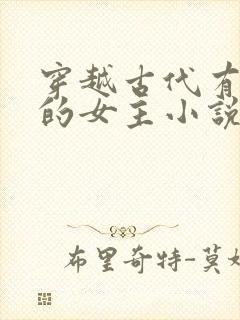 穿越古代有
的女主小説
布里奇特-莫